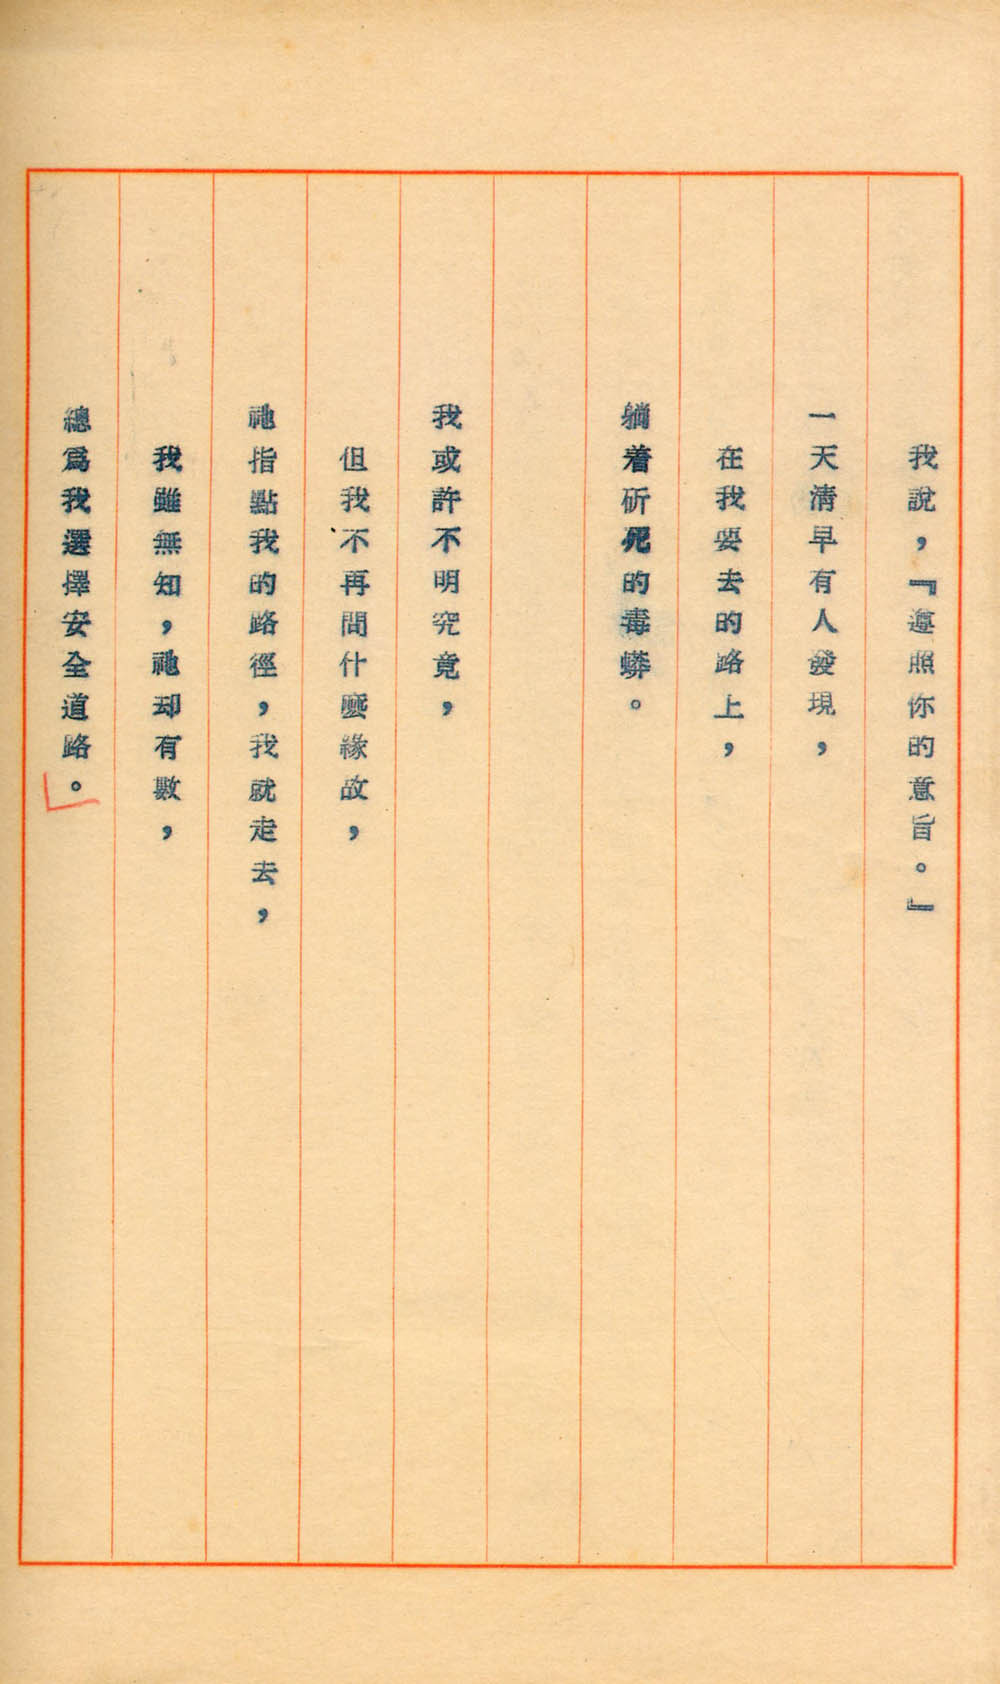 我說，『遵照你的意旨。』
一天清早有人發現，
在我要去的路上，
躺着斫死的毒蟒。
我或許不明究竟，
但我不再問什麼緣故，
祂指點我的路徑，我就走去，
我雖無知，祂却有數，
總爲我選擇安全道路。